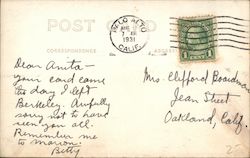 POST CARD
CORRESPONDENCE
PALO ALTO
AUG
7
1931
CALIF.
Dear Anita –
your card came
the day I left
Berkeley. Awfully
sorry not to have
seen you all.
Remember me
to Marion.
Betty
Mrs. Clifford Boardman
Jean Street
Oakland, Calif.